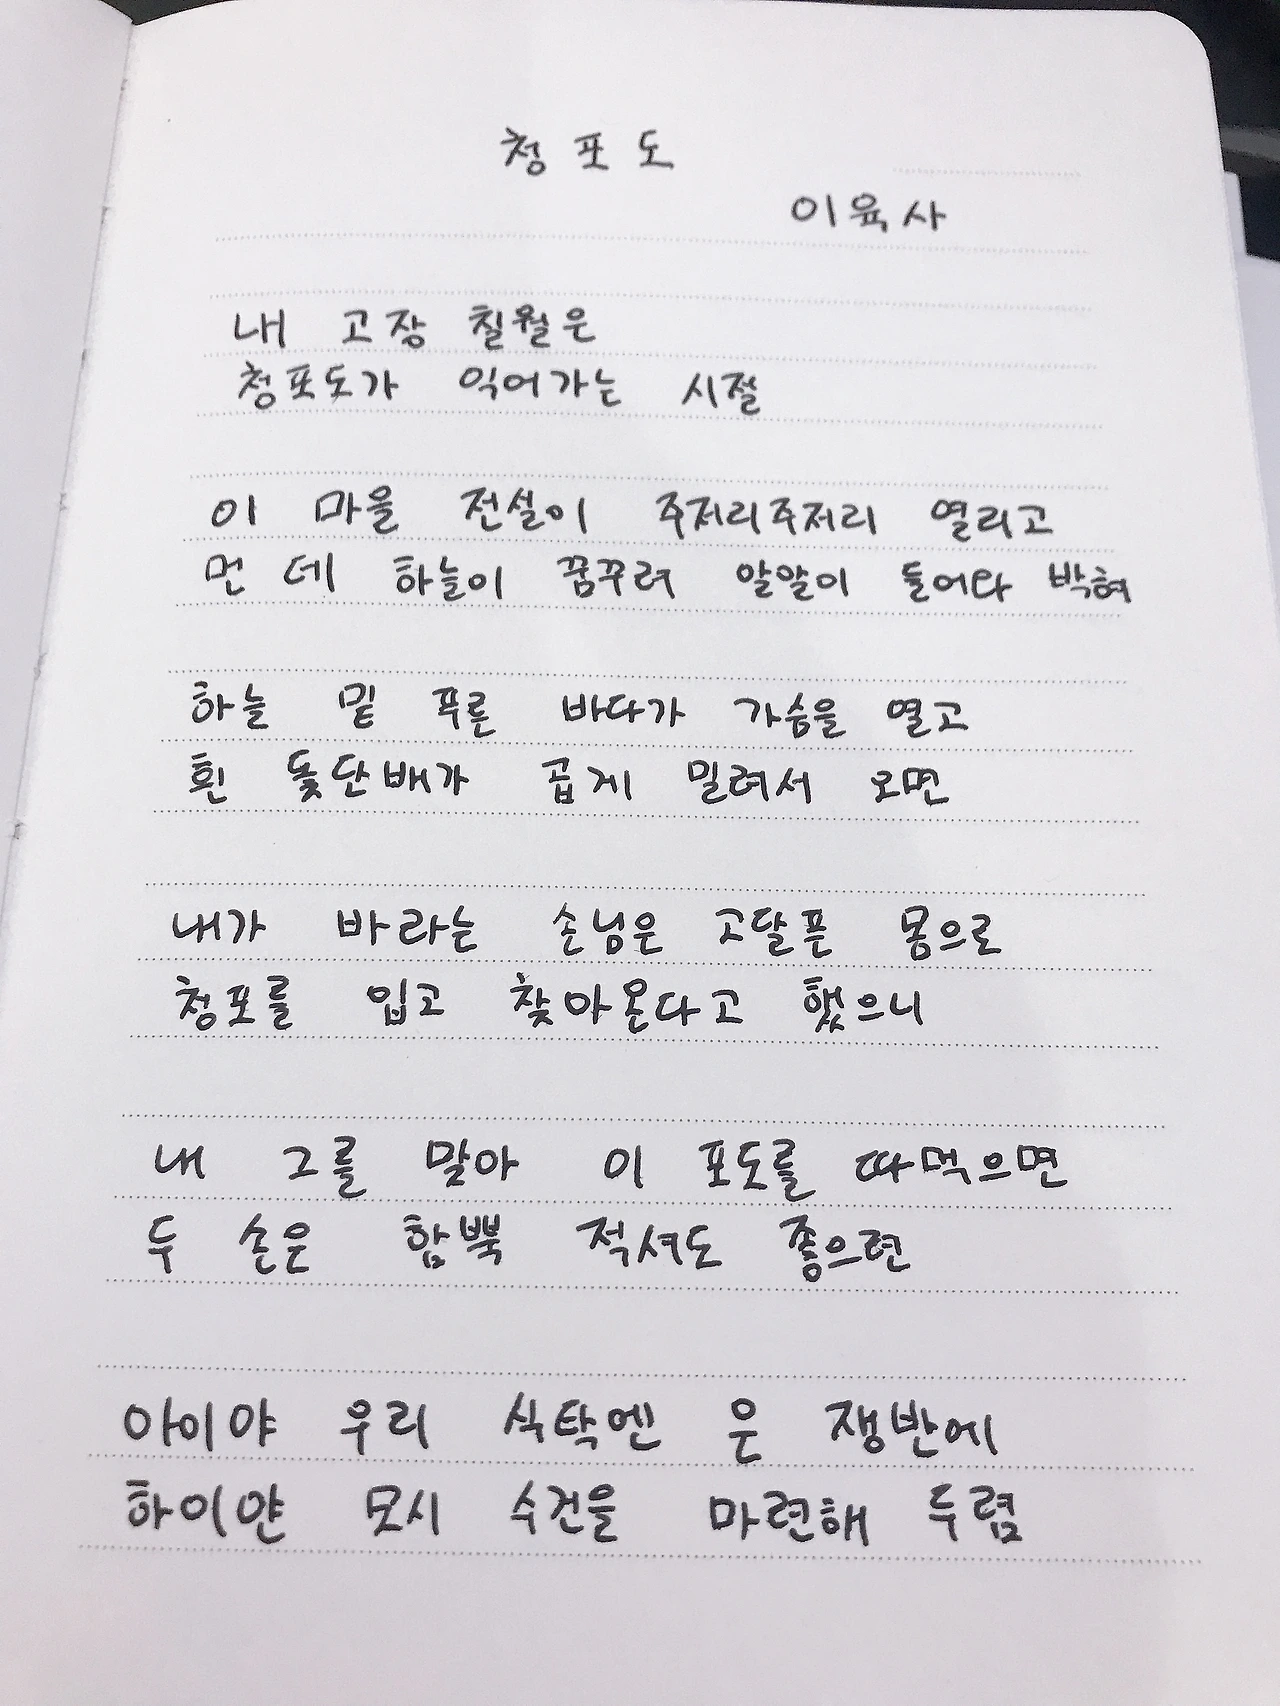 청포도
이육사
내 고장 칠월은
청포도가 익어가는 시절
이 마을 전설이 주저리주저리 열리고
먼 데 하늘이 꿈꾸려 알알이 들어와 박혀
하늘 밑 푸른 바다가 가슴을 열고
흰 돛단배가 곱게 밀려서 오면
내가 바라는 손님은 고달픈 몸으로
청포를 입고 찾아온다고 했으니
내 그를 맞아 이 포도를 따먹으면
두 손은 함뿍 적셔도 좋으련
아이야 우리 식탁엔 은 쟁반에
하이얀 모시 수건을 마련해 두렴